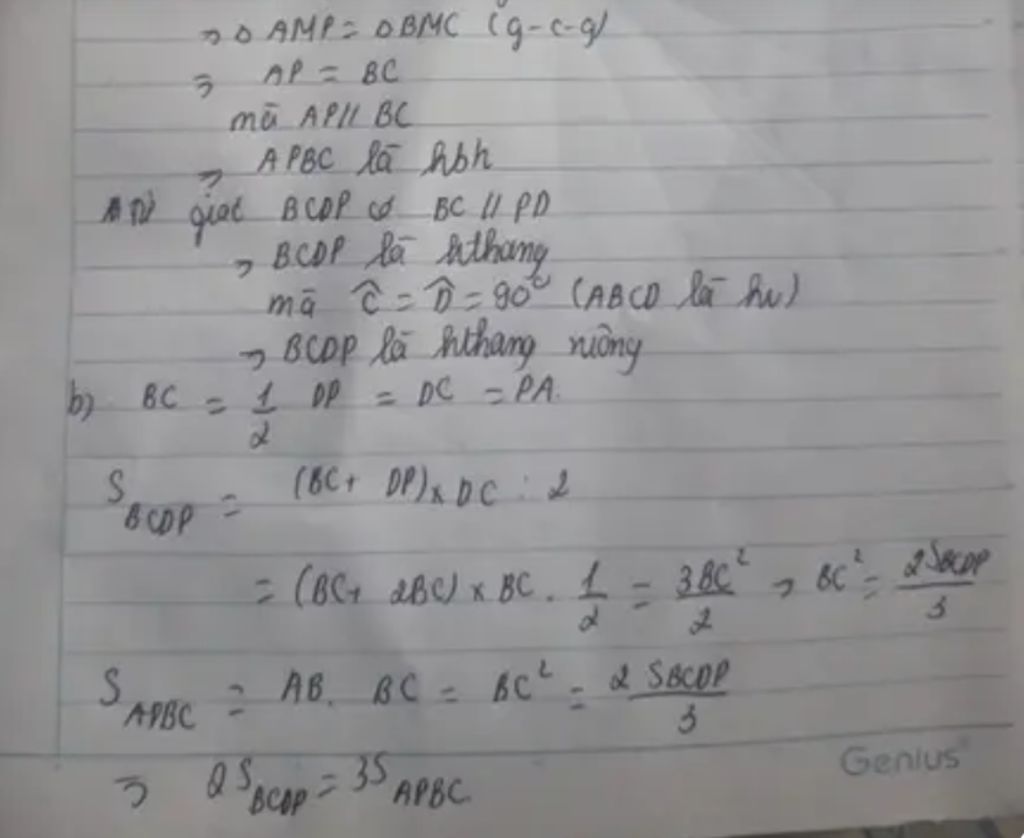 → Δ AMP = Δ BMC (g-c-g)
⇒ AP = BC
mà AP // BC
⇒ APBC là hbh
Tứ giác BCDP có BC // PD
→ BCDP là hthang
mà Ĉ = D̂ = 90° (ABCD là hv)
→ BCDP là hthang vuông
b) BC = 1/2 DP = DC = PA.
S_BCDP = (BC + DP) x DC : 2
= (BC + 2BC) x BC . 1/2 = 3BC²/2 → BC² = 2S_BCDP/3
S_APBC = AB. BC = BC² = 2 S_BCDP/3
⇒ 2S_BCDP = 3S_APBC
Genius